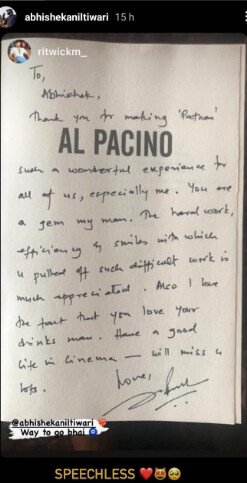 abhishekaniltiwari 15 h
ritwickm_
To,
Abhishek,
Thank you for making 'Pathan'
AL PACINO
such a wonderful experience for
all of us, especially me. You are
a gem my man. The hard work,
efficiency & smiles with which
u pulled off such difficult work is
much appreciated. Also I love
the fact that you love your
drinks man. Have a good
life in Cinema — will miss u
lots.
Love,
@abhishekaniltiwari
Way to go bhai 🧿
SPEECHLESS ❤️😻🥺